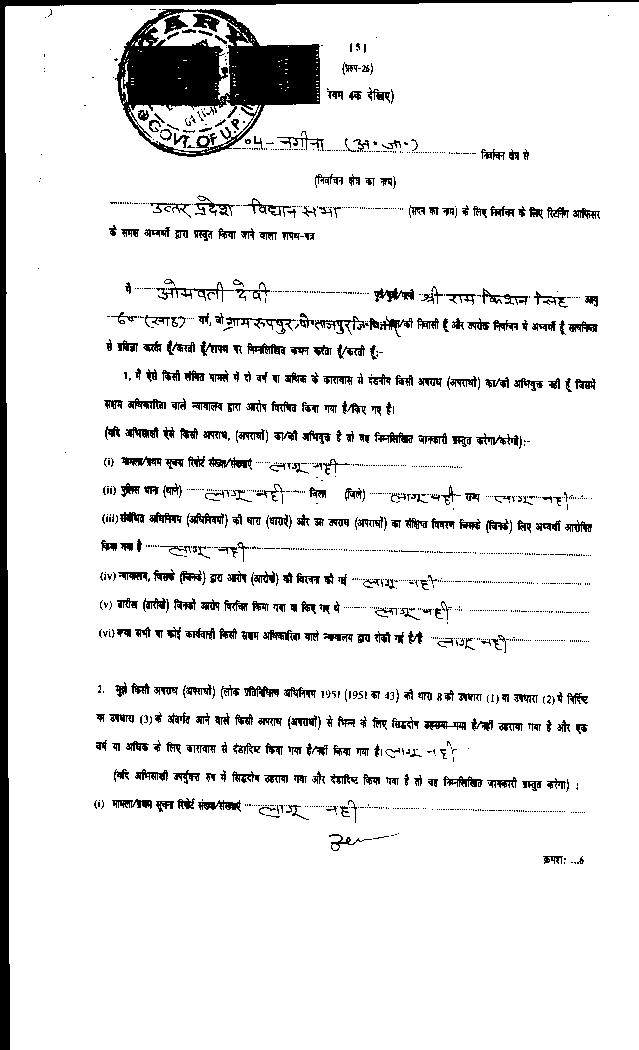 [5]
(प्ररुप-26)
नियम 4क देखिए)
NOTARY
GOVT. OF U.P.
04 - नगीना (अ॰जा॰) निर्वाचन क्षेत्र से
(निर्वाचन क्षेत्र का नाम)
उत्तर प्रदेश विधान सभा (सदन का नाम) के लिए निर्वाचन के लिए रिटर्निंग आफिसर
के समक्ष अभ्यर्थी द्वारा प्रस्तुत किया जाने वाला शपथ-पत्र
मैं ओमवती देवी पुत्र/पुत्री/पत्नी श्री राम किशन सिंह आयु
60 (साठ) वर्ष, जो ग्राम रुपपुर, का/की निवासी हूँ और उपरोक्त निर्वाचन में अभ्यर्थी हूँ सत्यनिष्ठा
से प्रतिज्ञा करता हूँ/करती हूँ/शपथ पर निम्नलिखित कथन करता हूँ/करती हूँ:-
1, मैं ऐसे किसी लंबित मामले में दो वर्ष या अधिक के कारावास से दंडनीय किसी अपराध (अपराधों) का/की अभियुक्त नहीं हूँ जिसमें
सक्षम अधिकारिता वाले न्यायालय द्वारा आरोप विरचित किया गया है/किए गए है।
(यदि अभिसाक्षी ऐसे किसी अपराध, (अपराधों) का/की अभियुक्त है तो वह निम्नलिखित जानकारी प्रस्तुत करेगा/करेगी):-
(i) मामला/प्रथम सूचना रिपोर्ट संख्या/संख्याएं लागू नहीं
(ii) पुलिस थाना (थाने) लागू नहीं जिला (जिले) लागू नहीं राज्य लागू नहीं
(iii) संबंधित अधिनियम (अधिनियमों) की धारा (धाराऐं) और उस अपराध (अपराधों) का संक्षिप्त विवरण जिसके (जिनके) लिए अभ्यर्थी आरोपित
किया गया है लागू नहीं
(iv) न्यायालय, जिसके (जिनके) द्वारा आरोप (आरोपों) की विरचना की गई लागू नहीं
(v) तारीख (तारीखें) जिनको आरोप विरचित किया गया या किए गए थे लागू नहीं
(vi) क्या सभी या कोई कार्यवाही किसी सक्षम अधिकारिता वाले न्यायालय द्वारा रोकी गई है/हैं लागू नहीं
2. मुझे किसी अपराध (अपराधों) (लोक प्रतिनिधित्व अधिनियम 1951 (1951 का 43) की धारा 8 की उपधारा (1) या उपधारा (2) में निर्दिष्ट
या उपधारा (3) के अंतर्गत आने वाले किसी अपराध (अपराधों) से भिन्न के लिए सिद्धदोष ठहराया गया है/नहीं ठहराया गया है और एक
वर्ष या अधिक के लिए कारावास से दंडादिष्ट किया गया है/नहीं किया गया है। लागू नहीं
(यदि अभिसाक्षी उपर्युक्त रुप में सिद्धदोष ठहराया गया और दंडादिष्ट किया गया है तो वह निम्नलिखित जानकारी प्रस्तुत करेगा) :
(i) मामला/प्रथम सूचना रिपोर्ट संख्या/संख्याएं लागू नहीं
क्रमश: ...6